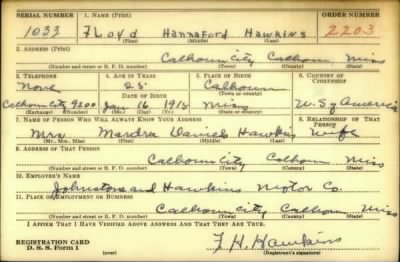 SERIAL NUMBER 1. NAME (Print) ORDER NUMBER
1033 Floyd Hannaford Hawkins 2203
(First) (Middle) (Last)
2. ADDRESS (Print)
Calhoun City Calhoun Miss
(Number and street or R. F. D. number) (Town) (County) (State)
3. TELEPHONE 4. AGE IN YEARS 5. PLACE OF BIRTH 6. COUNTRY OF CITIZENSHIP
None 25 Calhoun
DATE OF BIRTH (Town or county)
Calhoun City 9200 Jan 16 1915 Miss U.S of America
(Exchange) (Number) (Mo.) (Day) (Yr.) (State or country)
7. NAME OF PERSON WHO WILL ALWAYS KNOW YOUR ADDRESS 8. RELATIONSHIP OF THAT PERSON
Mrs Daniel Hawkins wife
(Mr., Mrs., Miss) (First) (Middle) (Last)
9. ADDRESS OF THAT PERSON
Calhoun City Calhoun Miss
(Number and street or R. F. D. number) (Town) (County) (State)
10. EMPLOYER'S NAME
Johnston and Hawkins Motor Co.
11. PLACE OF EMPLOYMENT OR BUSINESS
Calhoun City Calhoun Miss
(Number and street or R. F. D. number) (Town) (County) (State)
I AFFIRM THAT I HAVE VERIFIED ABOVE ANSWERS AND THAT THEY ARE TRUE.
REGISTRATION CARD
D. S. S. Form 1
F. H. Hawkins
(Registrant's signature)